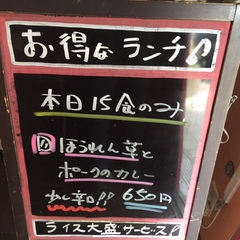 お得なランチ♪
本日15食のみ
⑩ ほうれん草と
ポークのカレー
少し辛口!! 650円
ライス大盛サービス!